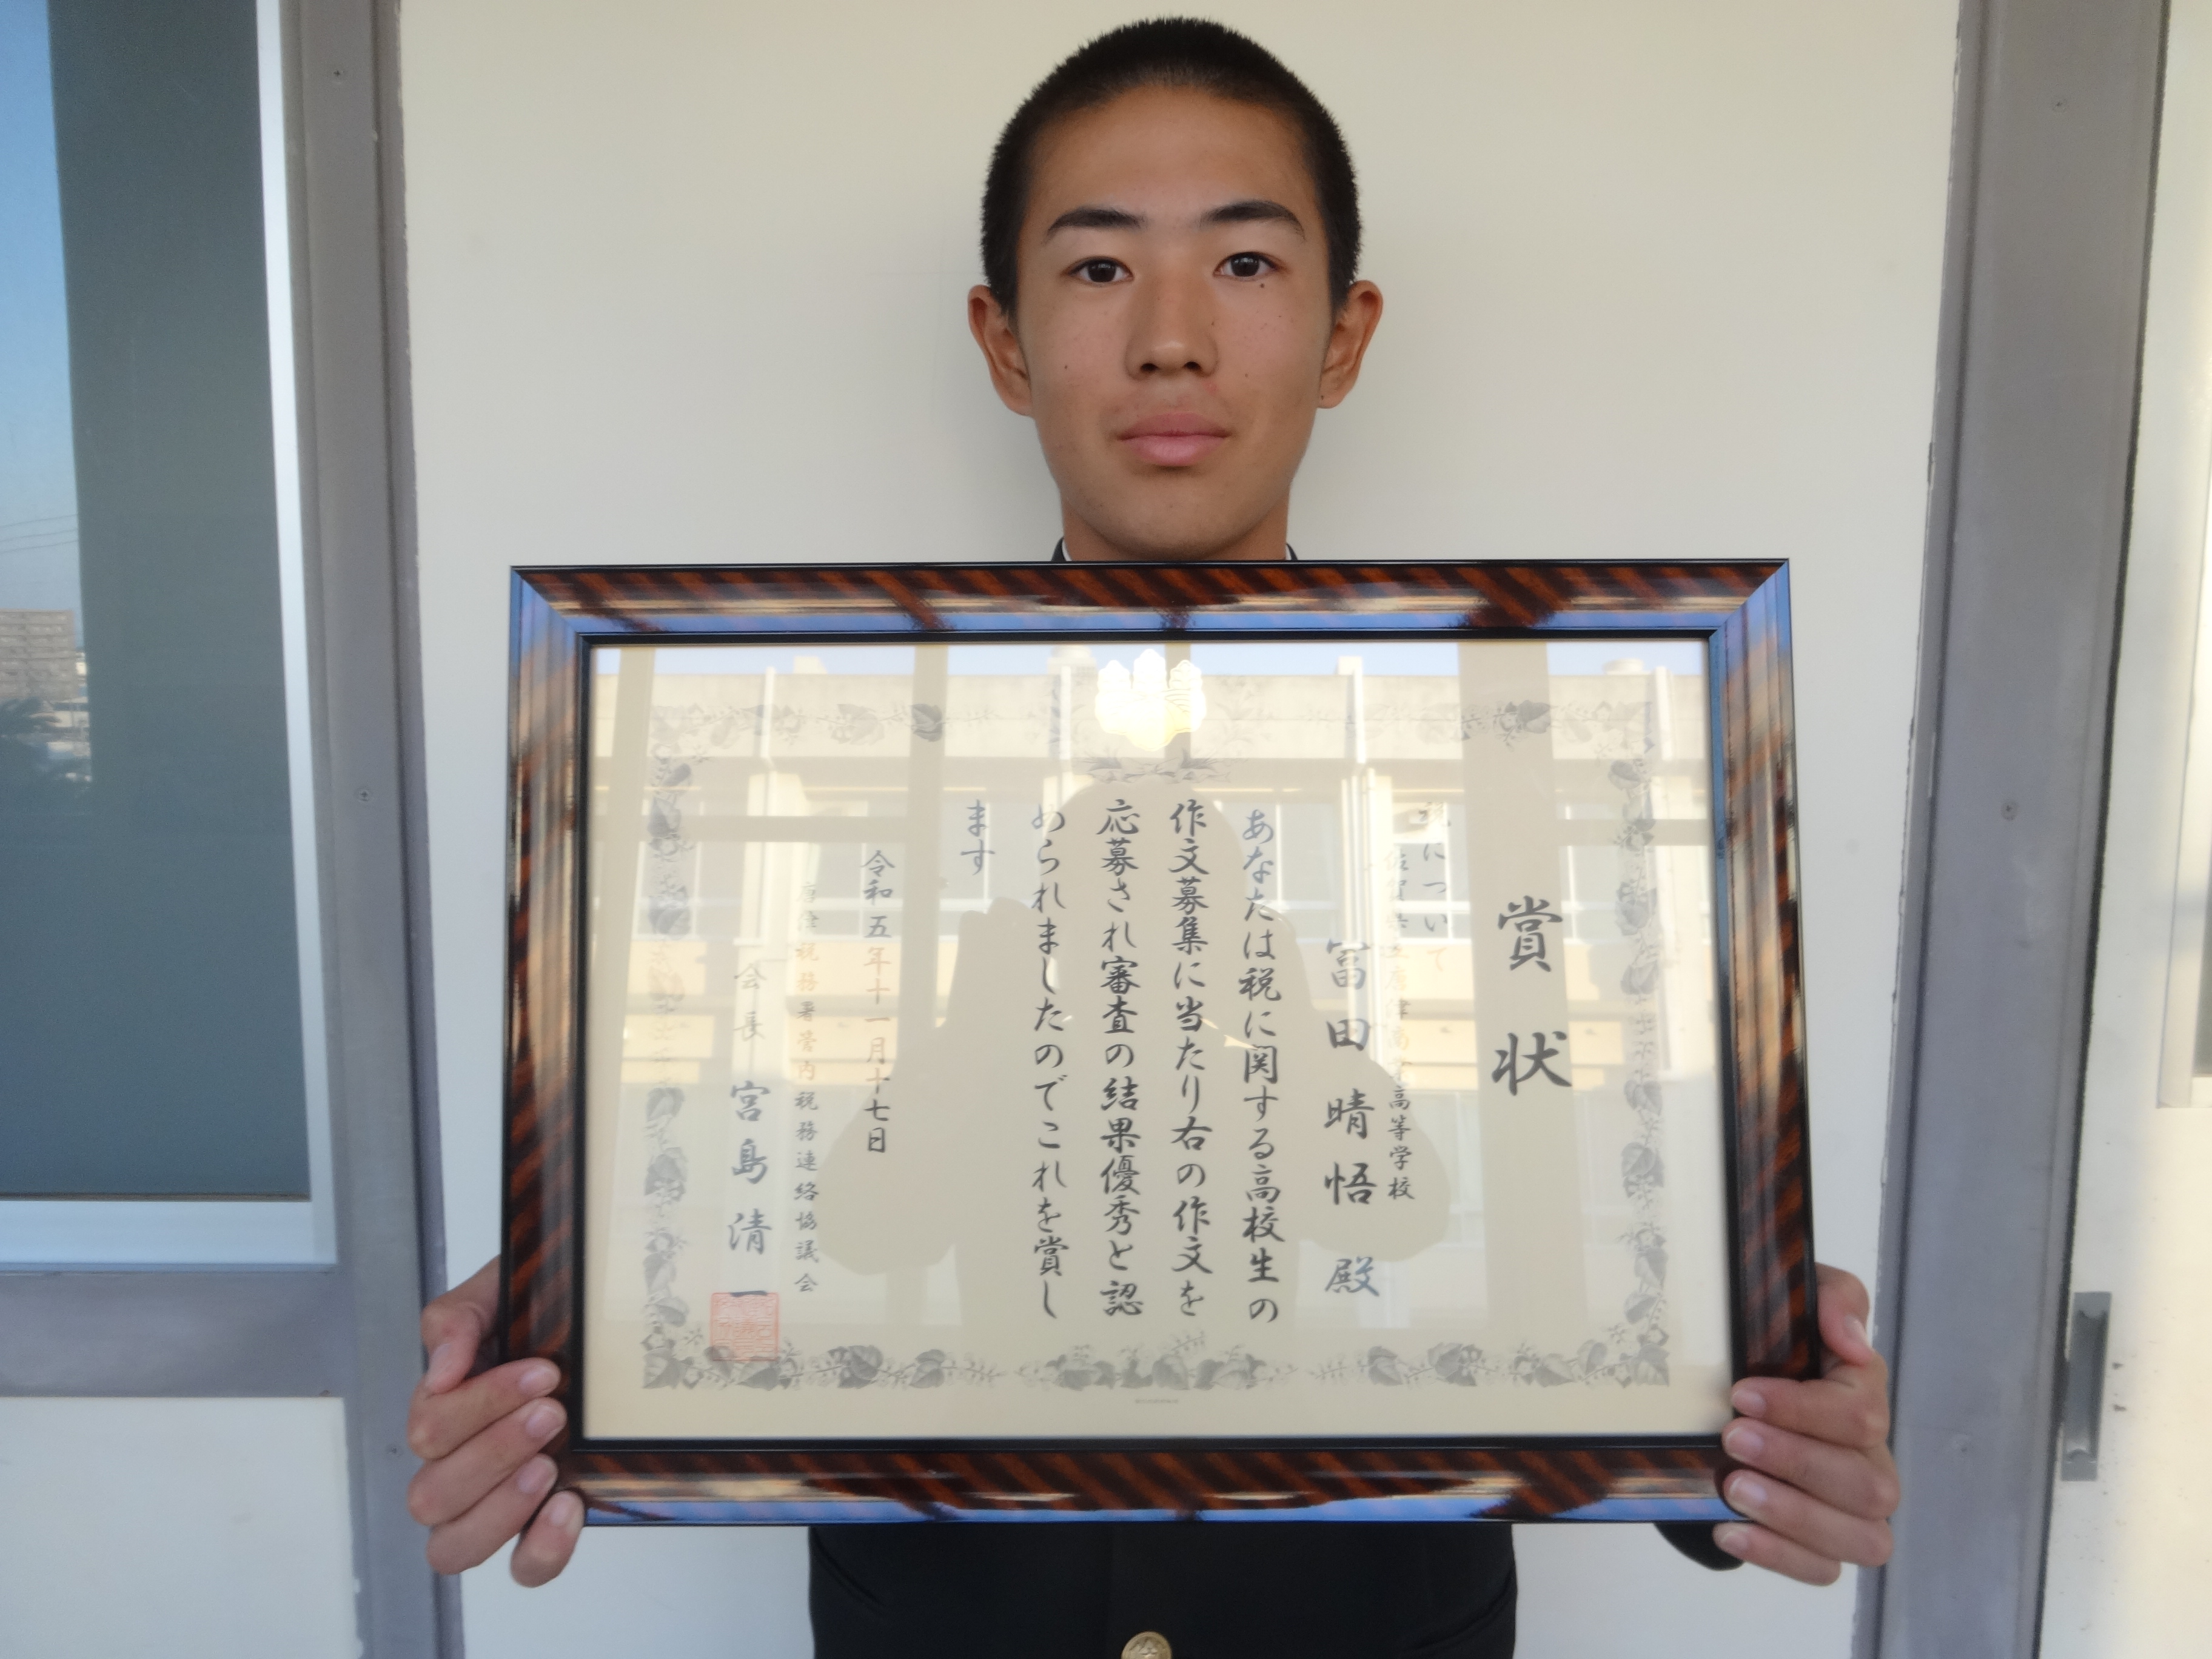 賞状
税について
佐賀県立唐津南高等学校
冨田晴悟殿
あなたは税に関する高校生の
作文募集に当たり右の作文を
応募され審査の結果優秀と認
められましたのでこれを賞し
ます
令和五年十一月十七日
唐津税務署管内税務連絡協議会
会長 宮島清一